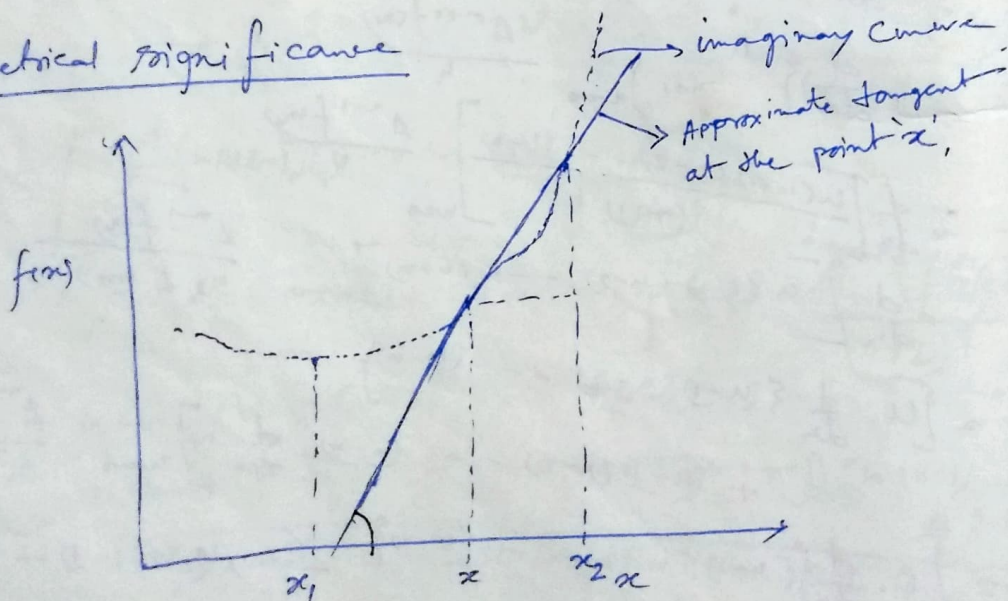 etrical significance
imaginary curve
Approximate tangent
at the point 'x',
f(x)
x₁
x
x₂
x